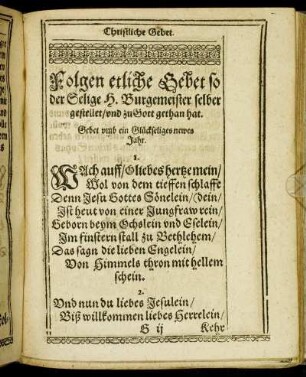 Christliche Gebet.
Folgen etliche Gebet so
der Selige H. Burgemeister selber
gestellet/vnd zu Gott gethan hat.
Gebet vmb ein Glückseliges newes
Jahr.
1.
WAch auff/O liebes hertze mein/
Wol von dem tieffen schlaffe
Denn Jesu Gottes Sönelein/dein/
Jst heut von einer Jungfraw rein/
Geborn beym Ochslein vnd Eselein/
Jm finstern stall zu Bethlehem/
Das sagn die lieben Engelein/
Von Himmels thron mit hellem
schein.
2.
Vnd nun du liebes Jesulein/
Biß willkommen liebes Herrelein/
G ij Kehr